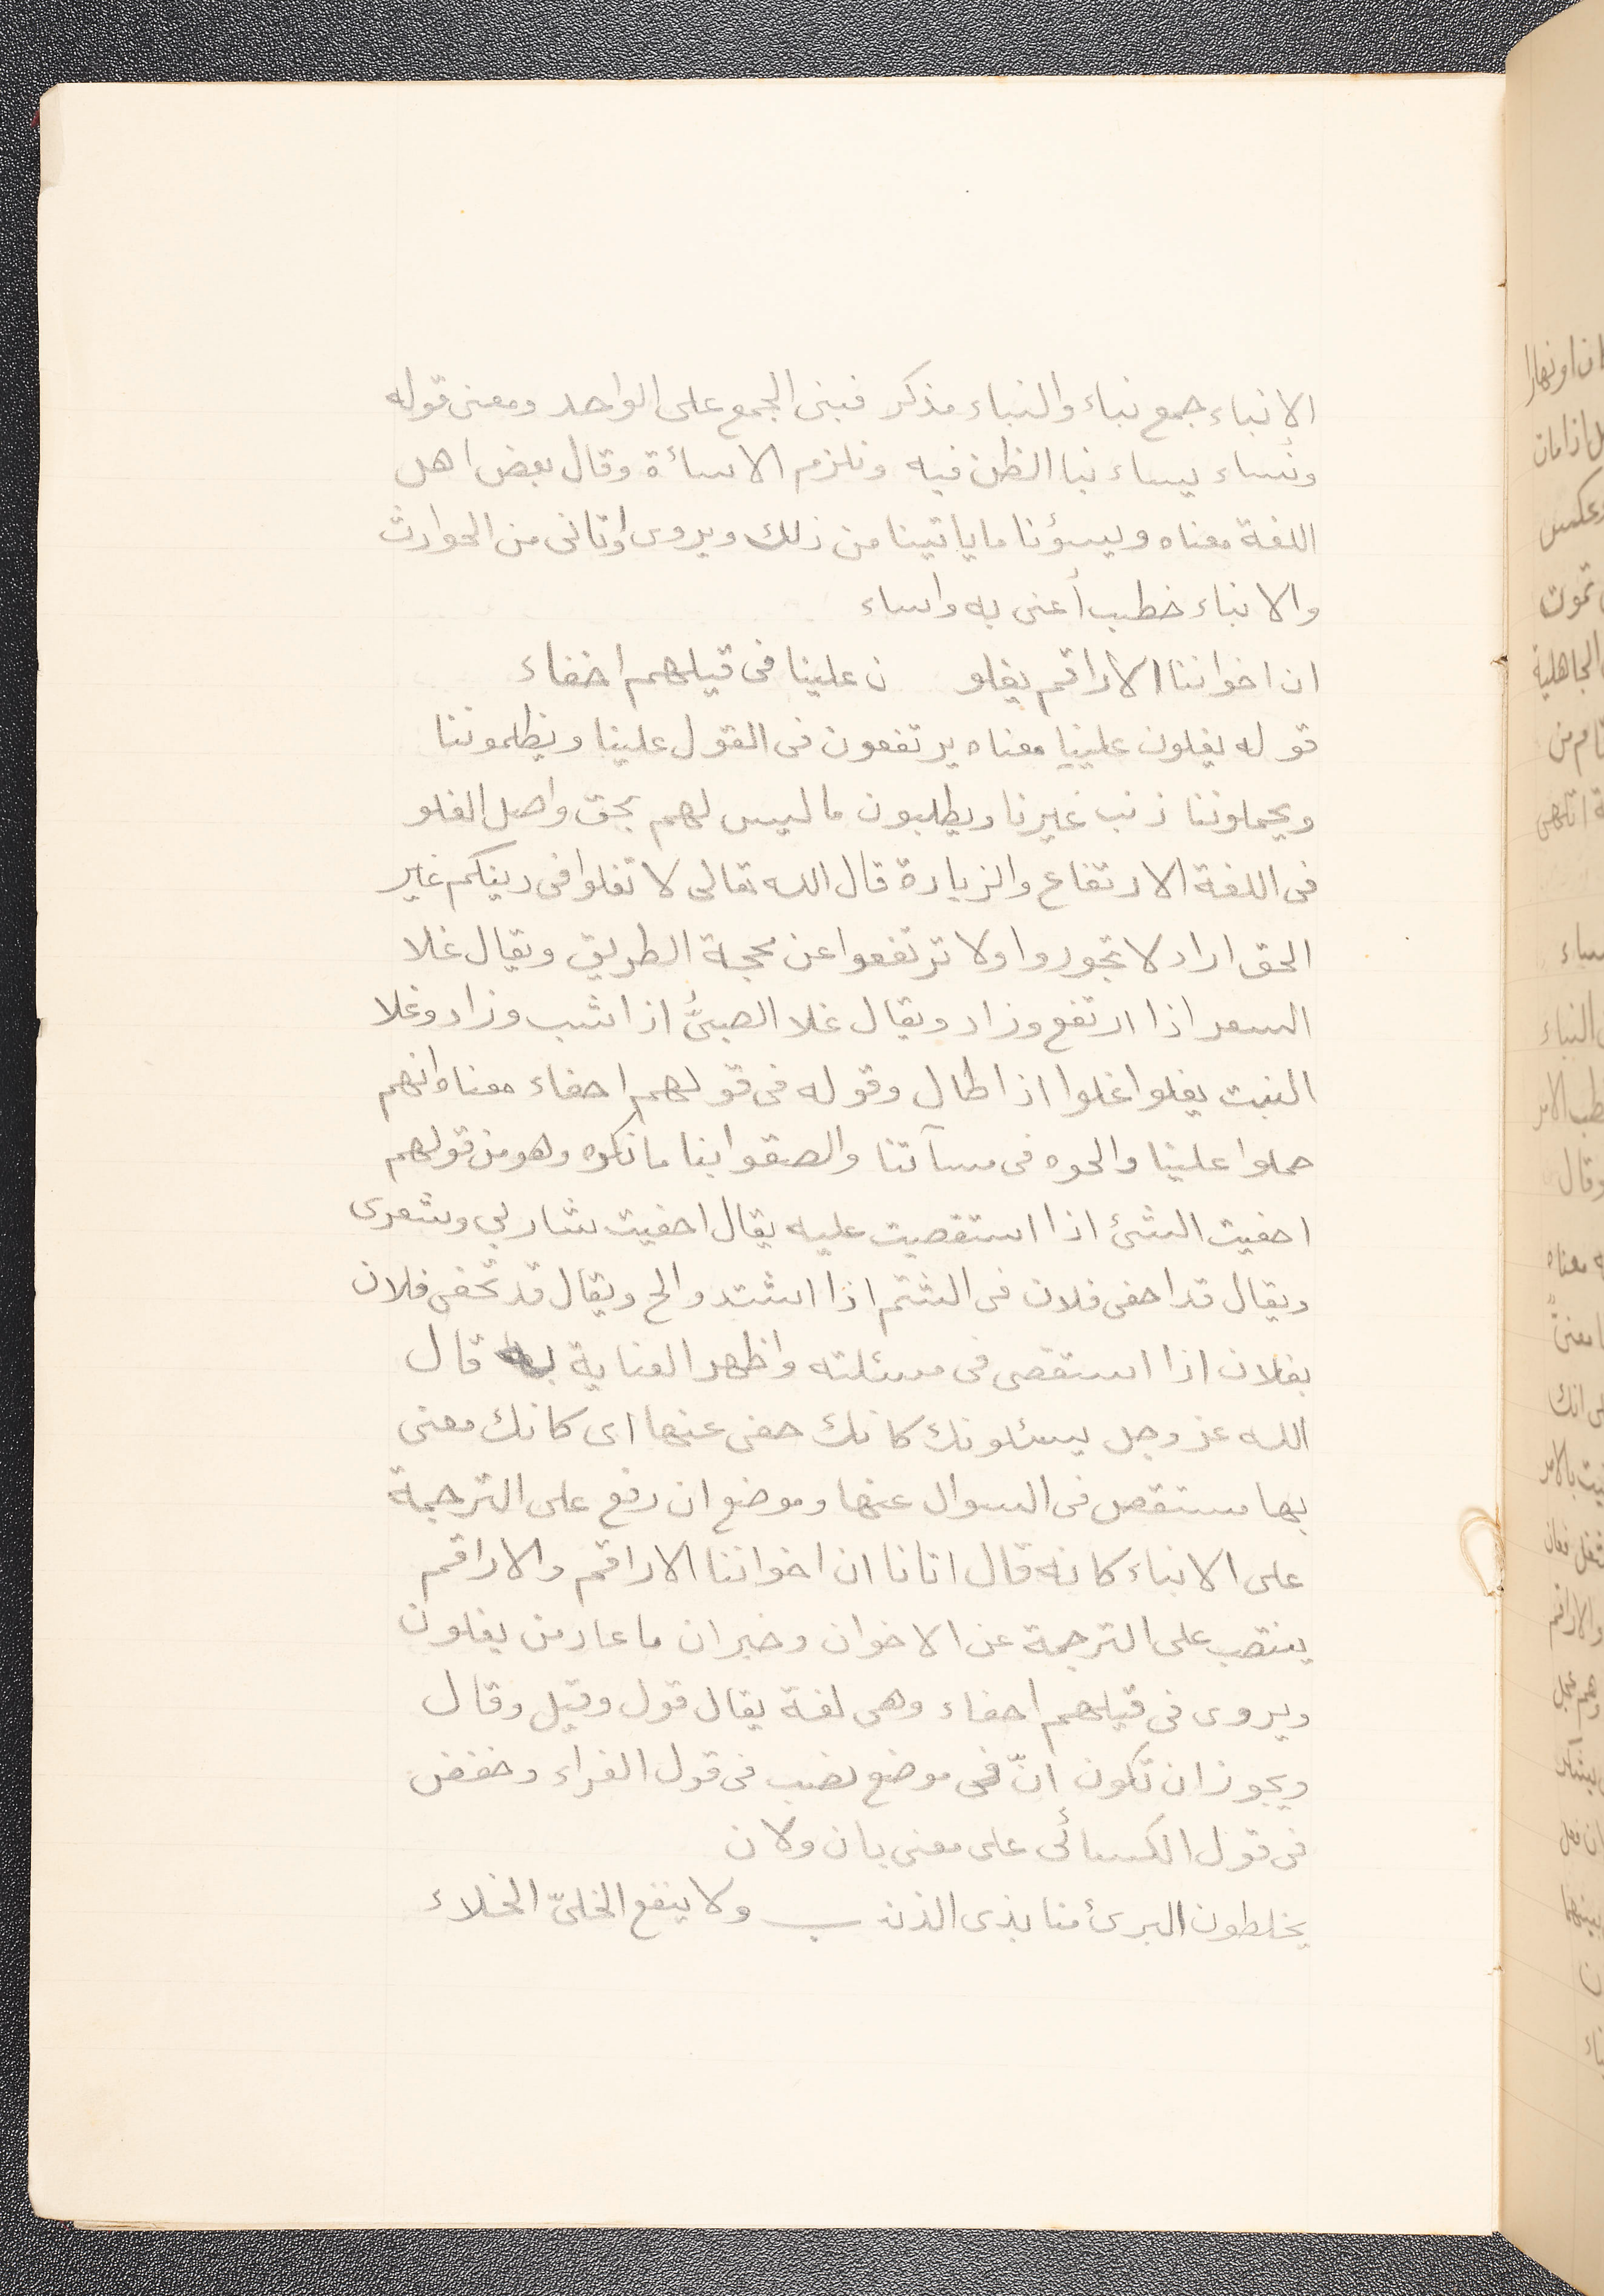 الانباء جمع نباء والنباء مذكر فبنى الجمع على الواحد ومعنى قوله
ونساء يساء نبا الظن فيه ونلزم الاسائة وقال بعض اهل
اللغة معناه ويسؤنا ماياتينا من ذلك ويروى اوتانى من الحوادث
والانباء خطب أعنى به واساء
ان اخواننا الاراقم يغلو ن علينا فى قيلهم احفاء
قوله يغلون علينا معناه يرتفعون فى القول علينا ويظلموننا
ويحملوننا ذنب غيرنا ويطلبون ماليس لهم بحق واصل الغلو
فى اللغة الارتفاع والزيادة قال الله تعالى لا تغلوا فى دينكم غير
الحق اراد لا تجوروا ولا ترتفعوا عن محجة الطريق ويقال غلا
السعر اذا ارتفع وزاد ويقال غلا الصبىُّ اذا شب وزاد وغلا
النبت يغلوا غلوا اذا طال وقوله فى قولهم احفاء معناه انهم
حملوا علينا والحوه فى مسآتنا والصقوا بنا مانكره وهو من قولهم
احفيت الشئ اذا استقصيت عليه يقال احفيت شاربي وشعرى
ويقال قد احفى فلان فى الشتم اذا اشتد والح ويقال قد تحفى فلان
بفلان اذا استقصى فى مسئلته واظهر العناية به قال
الله عز وجل يسئلونك كانك حفى عنها اى كانك معنى
بها مستقص فى السوال عنها وموضع ان رفع على الترجمة
على الانباء كانه قال اتانا ان اخواننا الاراقم والاراقم
ينتصب على الترجمة عن الاخوان وخبر ان ماعاد من يغلون
ويروى فى قيلهم احفاء وهى لغة يقال قول وقيل وقال
ويجوز ان تكون انّ فى موضع نصب فى قول الفراء وخفض
فى قول الكسائى على معنى بان ولان
يخلطون البرئ منا بذى الذنـ ـب ولا ينفع الخلىّ الخلاء